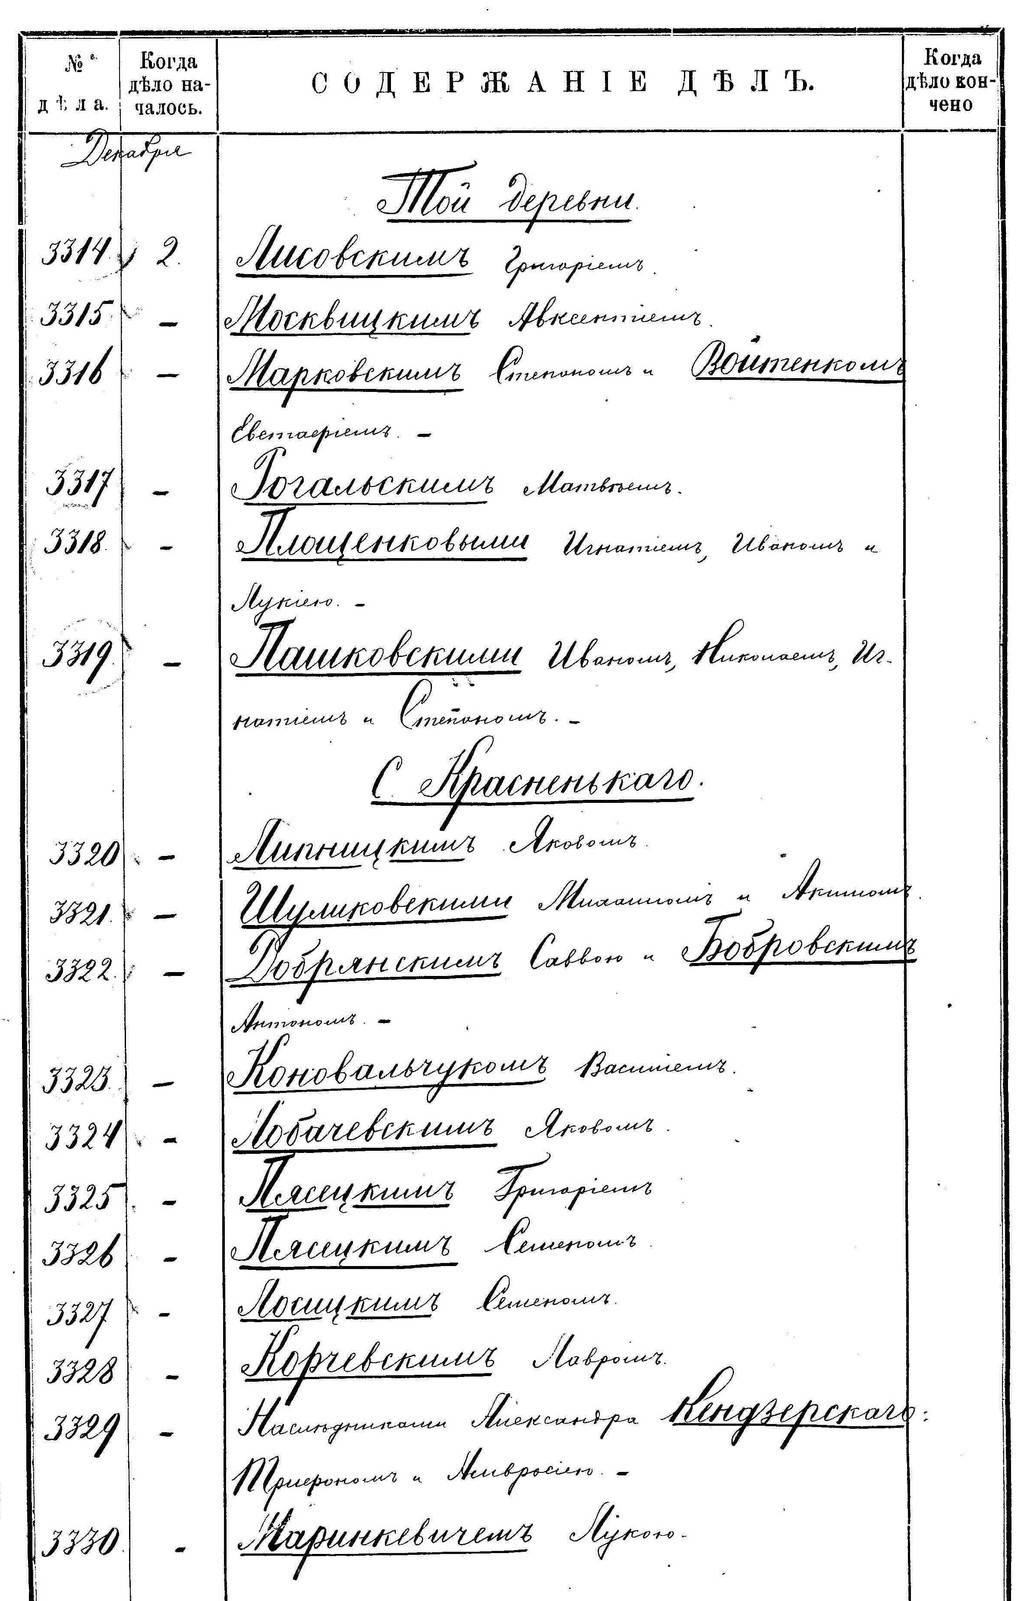 № дѣла.
Когда дѣло на-
чалось.
СОДЕРЖАНІЕ ДѢЛЪ.
Когда
дѣло кон-
чено
Декабря
Той деревни.
3314. 2. Лисовскимъ Григоріемъ.
3315 – Москвицкимъ Авксентіемъ.
3316 – Марковскимъ Степаномъ и Войтенкомъ
Евстафіемъ. –
3317 – Рогальскимъ Матвѣемъ.
3318. – Площенковыми Игнатіемъ, Иваномъ и
Лукією. –
3319. – Пашковскими Иваномъ, Николаемъ, Иг-
натіемъ и Степаномъ. –
С. Красненькаго.
3320 – Липницкимъ Яковомъ.
3321. – Шуликовскими Михаиломъ и Акимомъ.
3322. – Добрянскимъ Саввою и Бобровскимъ
Антономъ. –
3323. – Коновальчукомъ Василіемъ.
3324 – Лобачевскимъ Яковомъ.
3325. – Пясецкимъ Григоріемъ
3326 – Пясецкимъ Семеномъ.
3327 – Лосицкимъ Семеномъ.
3328 – Корчевскимъ Лавромъ.
3329 – Наслѣдниками Александра Кендзерскаго:
Трифономъ и Амвросіею. –
3330. – Маринкевичемъ Лукою.